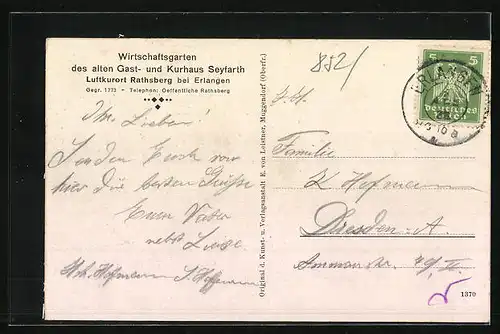 Wirtschaftsgarten
des alten Gast- und Kurhaus Seyfarth
Luftkurort Rathsberg bei Erlangen
Gegr. 1773 • Telephon: Oeffentliche Rathsberg
852/
Ihr Lieben!
Senden Euch von
hier die besten Grüße
Euer Vater
nebst Luise
Hch. Hofmann J. Hofmann
Original d. Kunst- u. Verlagsanstalt E. von Leistner, Muggendorf (Oberfr.)
5 5
Deutsches
Reich
ERLANGEN
Familie
K Hofmann
Dresden-A.
Ammonstr. 79 II.
1370